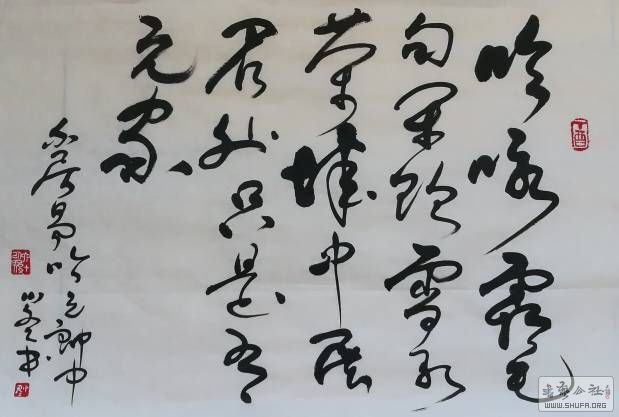 吟咏霜毛
句闲雪水
茶城中展
眉处只是有
元家
白居易吟元郎中
书
书法公社
WWW.SHUFA.ORG